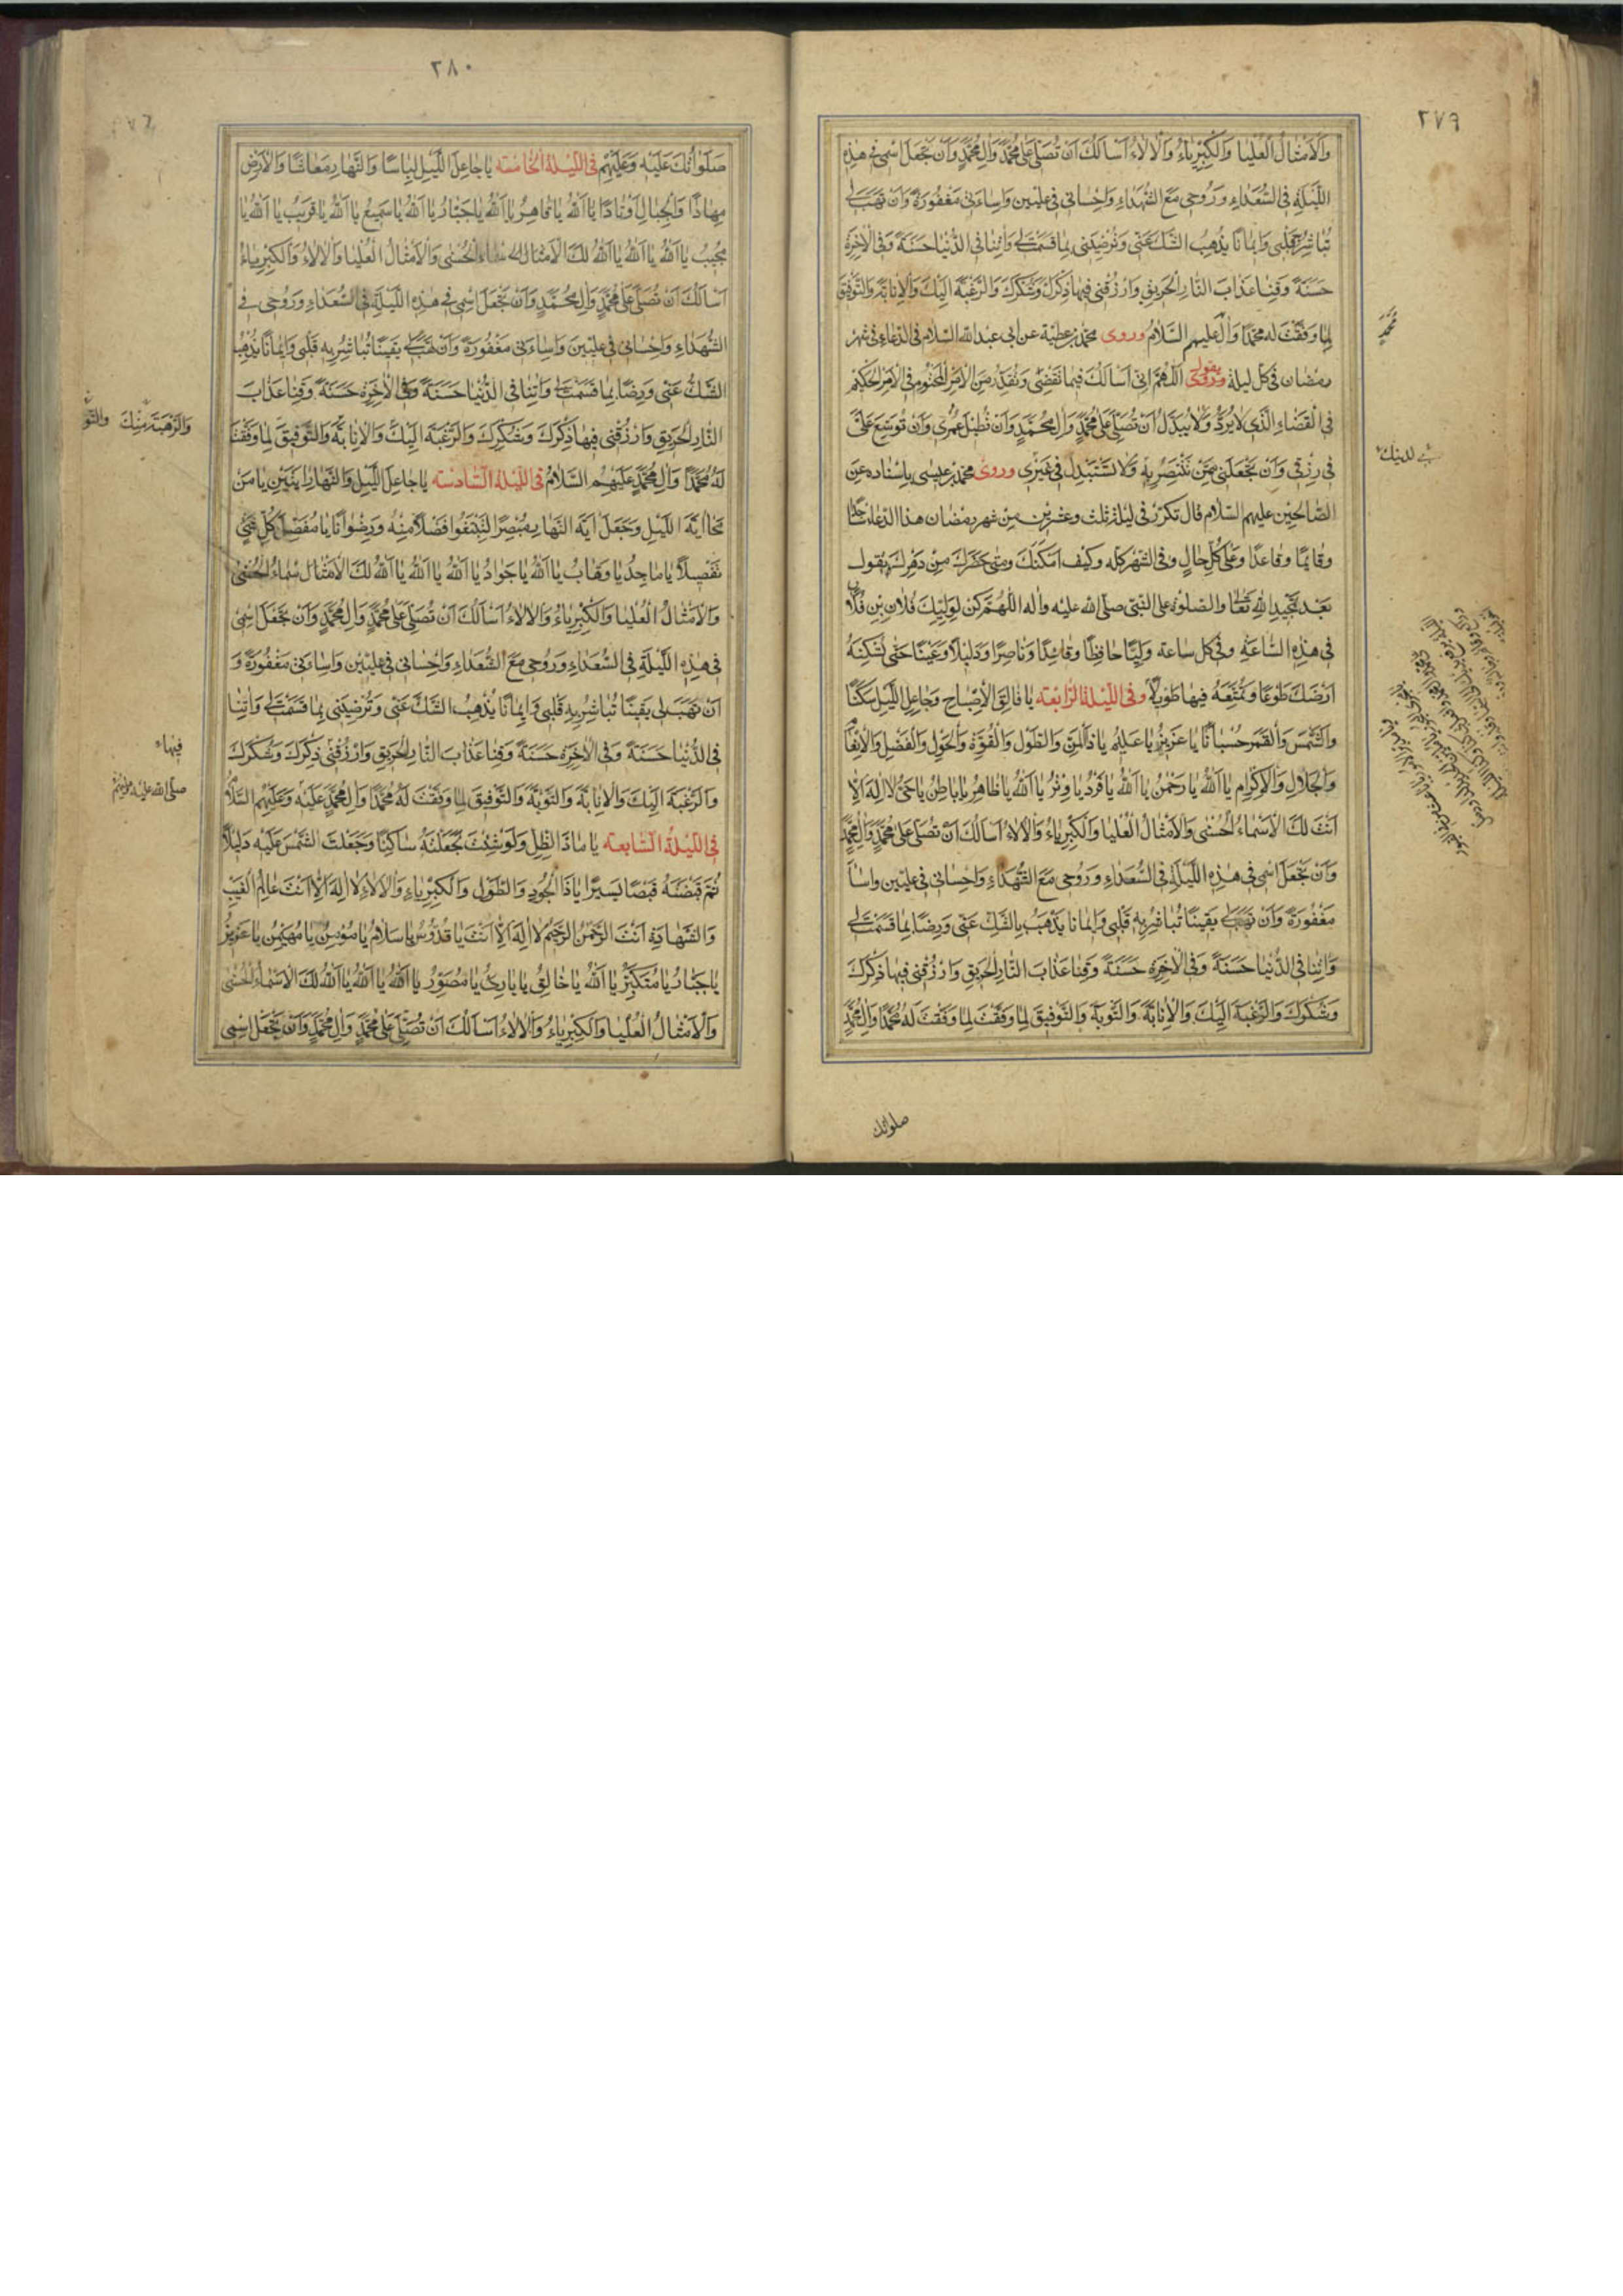 ٢٧٩
وَالْاَمْثالُ الْعُلْيا وَالْكِبْرِياءُ وَالْالاءُ اَسْاَلُكَ اَنْ تُصَلِّىَ عَلى مُحَمَّدٍ وَالِ مُحَمَّدٍ وَاَنْ تَجْعَلَ اسْمى فى هذِهِ
اللَّيْلَةِ فِى السُّعَداءِ وَرُوحى مَعَ الشُّهَداءِ وَاِحْسانى فى عِلِّيّينَ وَاِساءَتى مَغْفُورَةً وَاَنْ تَهَبَ لى
تُباشِرُ قَلْبى وَايمانًا يُذْهِبُ الشَّكَّ عَنّى وَتُرْضِيَنى بِما قَسَمْتَ لى وَاتِنا فِى الدُّنْيا حَسَنَةً وَفِى الْاخِرَةِ
حَسَنَةً وَقِنا عَذابَ النّارِ الْحَريقِ وَارْزُقْنى فيها ذِكْرَكَ وَشُكْرَكَ وَالرَّغْبَةَ اِلَيْكَ وَالْاِنابَةَ وَالتَّوْفيقَ
لِما وَفَّقْتَ لَه مُحَمَّدًا وَالَ عليهم السَّلامُ وروى محمد بن عطية عن ابى عبد الله السلام فى الدعاء فى شهر
رمضان فى كل ليلة يقول اَللّهُمَّ اِنّى اَسْاَلُكَ فيما تَقْضى وَتُقَدِّرُ مِنَ الْاَمْرِ الْمَحْتُومِ فِى الْاَمْرِ الْحَكيمِ
فِى الْقَضاءِ الَّذى لا يُرَدُّ وَلا يُبَدَّلُ اَنْ تُصَلِّىَ عَلى مُحَمَّدٍ وَالِ مُحَمَّدٍ وَاَنْ تُطيلَ عُمْرى وَاَنْ تُوَسِّعَ عَلَىَّ
فى رِزْقى وَاَنْ تَجْعَلَنى مِمَّنْ تَنْتَصِرُ بِهِ وَلا تَسْتَبْدِلْ بى غَيْرى وروى محمد بن عيسى باسناده عن
الصالحين عليهم السلام قال تكرر فى ليلة ثلث وعشرين من شهر رمضان هذا الدعاء ساجدا
وقائما وقاعدا وعلى كل حال وفى الشهر كله وكيف امكنك ومتى حضرك من دهرك يقول
بعد تمجيد الله تعالى والصلوة على النبى صلى الله عليه واله اللهم كن لوليك فلان بن فلان
فى هذه الساعة وفى كل ساعة وَلِيًّا حافِظًا وَقائِدًا وَناصِرًا وَدَليلًا وَعَيْنًا حَتّى تُسْكِنَهُ
اَرْضَكَ طَوْعًا وَتُمَتِّعَهُ فيها طَويلًا وفى الليلة الرابعة يا فالِقَ الْاِصْباحِ وَجاعِلَ اللَّيْلِ سَكَنًا
وَالشَّمْسَ وَالْقَمَرَ حُسْبانًا يا عَزيزُ يا عَليمُ يا ذَا الْمَنِّ وَالطَّوْلِ وَالْقُوَّةِ وَالْحَوْلِ وَالْفَضْلِ وَالْاِنْعامِ
وَالْجَلالِ وَالْاِكْرامِ يا اَللهُ يا رَحْمنُ يا اَللهُ يا فَرْدُ يا وِتْرُ يا اَللهُ يا ظاهِرُ يا باطِنُ يا حَىُّ لا اِلهَ اِلّا
اَنْتَ لَكَ الْاَسْماءُ الْحُسْنى وَالْاَمْثالُ الْعُلْيا وَالْكِبْرِياءُ وَالْالاءُ اَسْاَلُكَ اَنْ تُصَلِّىَ عَلى مُحَمَّدٍ وَالِ مُحَمَّدٍ
وَاَنْ تَجْعَلَ اسْمى فى هذِهِ اللَّيْلَةِ فِى السُّعَداءِ وَرُوحى مَعَ الشُّهَداءِ وَاِحْسانى فى عِلِّيّينَ وَاِساءَ
مَغْفُورَةً وَاَنْ تَهَبَ لى يَقينًا تُباشِرُ بِهِ قَلْبى وَايمانًا يَذْهَبُ بِالشَّكِّ عَنّى وَرِضًا بِما قَسَمْتَ لى
وَاتِنا فِى الدُّنْيا حَسَنَةً وَفِى الْاخِرَةِ حَسَنَةً وَقِنا عَذابَ النّارِ الْحَريقِ وَارْزُقْنى فيها ذِكْرَكَ
وَشُكْرَكَ وَالرَّغْبَةَ اِلَيْكَ وَالْاِنابَةَ وَالتَّوْبَةَ وَالتَّوْفيقَ لِما وَفَّقْتَ لِما وَفَّقْتَ لَهُ مُحَمَّدًا وَالَ مُحَمَّدٍ
صلواتك
محمد
لدينك
٢٨٠
صَلَواتُكَ عَلَيْهِ وَعَلَيْهِمْ فى الليلة الخامسة يا جاعِلَ اللَّيْلِ لِباسًا وَالنَّهارِ مَعاشًا وَالْاَرْضِ
مِهادًا وَالْجِبالِ اَوْتادًا يا اَللهُ يا قاهِرُ يا اَللهُ يا جَبّارُ يا اَللهُ يا سَميعُ يا اَللهُ يا قَريبُ يا اَللهُ يا
مُجيبُ يا اَللهُ يا اَللهُ يا اَللهُ لَكَ الْاَسْماءُ الْحُسْنى وَالْاَمْثالُ الْعُلْيا وَالْالاءُ وَالْكِبْرِياءُ
اَسْاَلُكَ اَنْ تُصَلِّىَ عَلى مُحَمَّدٍ وَالِ مُحَمَّدٍ وَاَنْ تَجْعَلَ اسْمى فى هذِهِ اللَّيْلَةِ فِى السُّعَداءِ وَرُوحى فى
الشُّهَداءِ وَاِحْسانى فى عِلِّيّينَ وَاِساءَتى مَغْفُورَةً وَاَنْ تَهَبَ لى يَقينًا تُباشِرُ بِهِ قَلْبى وَايمانًا يُذْهِبُ
الشَّكَّ عَنّى وَرِضًا بِما قَسَمْتَ لى وَاتِنا فِى الدُّنْيا حَسَنَةً وَفِى الْاخِرَةِ حَسَنَةً وَقِنا عَذابَ
النّارِ الْحَريقِ وَارْزُقْنى فيها ذِكْرَكَ وَشُكْرَكَ وَالرَّغْبَةَ اِلَيْكَ وَالْاِنابَةَ وَالتَّوْفيقَ لِما وَفَّقْتَ
لَهُ مُحَمَّدًا وَالَ مُحَمَّدٍ عَلَيْهِمُ السَّلامُ فى الليلة السادسة يا جاعِلَ اللَّيْلِ وَالنَّهارِ ايَتَيْنِ يا مَنْ
مَحا ايَةَ اللَّيْلِ وَجَعَلَ ايَةَ النَّهارِ مُبْصِرًا لِتَبْتَغُوا فَضْلًا مِنْهُ وَرِضْوانًا يا مُفَصِّلَ كُلِّ شَىْءٍ
تَفْصيلًا يا ماجِدُ يا وَهّابُ يا اَللهُ يا جَوادُ يا اَللهُ يا اَللهُ يا اَللهُ لَكَ الْاَسْماءُ الْحُسْنى
وَالْاَمْثالُ الْعُلْيا وَالْكِبْرِياءُ وَالْالاءُ اَسْاَلُكَ اَنْ تُصَلِّىَ عَلى مُحَمَّدٍ وَالِ مُحَمَّدٍ وَاَنْ تَجْعَلَ اسْمى
فى هذِهِ اللَّيْلَةِ فِى السُّعَداءِ وَرُوحى مَعَ الشُّهَداءِ وَاِحْسانى فى عِلِّيّينَ وَاِساءَتى مَغْفُورَةً وَ
اَنْ تَهَبَ لى يَقينًا تُباشِرُ بِهِ قَلْبى وَايمانًا يُذْهِبُ الشَّكَّ عَنّى وَتُرْضِيَنى بِما قَسَمْتَ لى وَاتِنا
فِى الدُّنْيا حَسَنَةً وَفِى الْاخِرَةِ حَسَنَةً وَقِنا عَذابَ النّارِ الْحَريقِ وَارْزُقْنى ذِكْرَكَ وَشُكْرَكَ
وَالرَّغْبَةَ اِلَيْكَ وَالْاِنابَةَ وَالتَّوْبَةَ وَالتَّوْفيقَ لِما وَفَّقْتَ لَهُ مُحَمَّدًا وَالَ مُحَمَّدٍ عَلَيْهِ وَعَلَيْهِمُ السَّلامُ
فى الليلة السابعة يا مادَّ الظِّلِّ وَلَوْ شِئْتَ لَجَعَلْتَهُ ساكِنًا وَجَعَلْتَ الشَّمْسَ عَلَيْهِ دَليلًا
ثُمَّ قَبَضْتَهُ قَبْضًا يَسيرًا يا ذَا الْجُودِ وَالطَّوْلِ وَالْكِبْرِياءِ وَالْالاءِ لا اِلهَ اِلّا اَنْتَ عالِمُ الْغَيْبِ
وَالشَّهادَةِ اَنْتَ الرَّحْمنُ الرَّحيمُ لا اِلهَ اِلّا اَنْتَ يا قُدُّوسُ يا سَلامُ يا مُؤْمِنُ يا مُهَيْمِنُ يا عَزيزُ
يا جَبّارُ يا مُتَكَبِّرُ يا اَللهُ يا خالِقُ يا بارِئُ يا مُصَوِّرُ يا اَللهُ يا اَللهُ يا اَللهُ لَكَ الْاَسْماءُ الْحُسْنى
وَالْاَمْثالُ الْعُلْيا وَالْكِبْرِياءُ وَالْالاءُ اَسْاَلُكَ اَنْ تُصَلِّىَ عَلى مُحَمَّدٍ وَالِ مُحَمَّدٍ وَاَنْ تَجْعَلَ اسْمى
وَالرَّهْبَةَ مِنْكَ
فيها
صلى الله عليه وعليهم